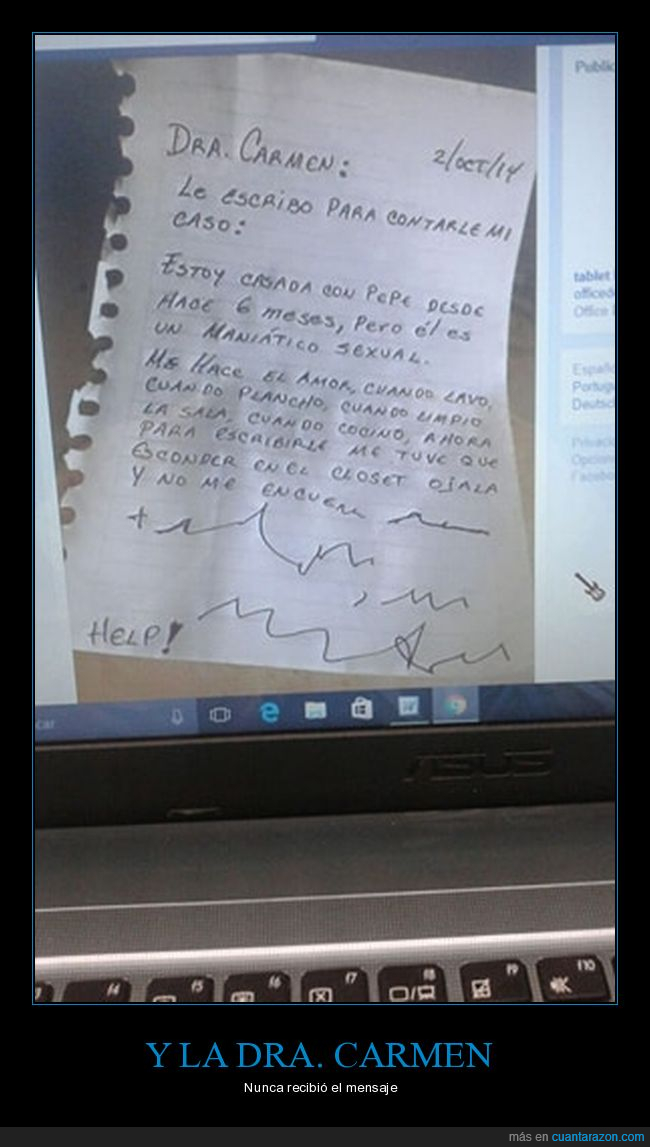 Public
DRA. CARMEN: 2/OCT/14
LE ESCRIBO PARA CONTARLE MI
CASO:
ESTOY CASADA CON PEPE DESDE
HACE 6 meses, Pero él es
UN MANIÁTICO SEXUAL.
ME HACE EL AMOR, CUANDO LAVO,
CUANDO PLANCHO, CUANDO LIMPIO
LA SALA, CUANDO COCINO, AHORA
PARA ESCRIBIRLE ME TUVE QUE
ESCONDER EN EL CLOSET OJALA
Y NO ME ENCUEN
HELP!
tablet
officede
Office
Españo
Portugu
Deutsc
Privaci
Opcion
Facebo
car
ASUS
f4 f5 f6 f7 f8 f9 f10
Y LA DRA. CARMEN
Nunca recibió el mensaje
más en cuantarazon.com